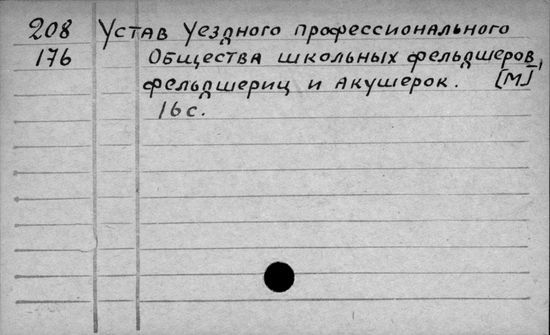 208 Устав Уездного профессионального
176 Общества школьных фельдшеров,
фельдшериц и акушерок. [М]
16 с.